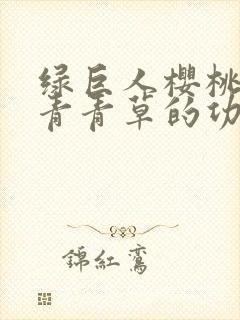 绿巨人樱桃
青青草的功
錦紅鸞